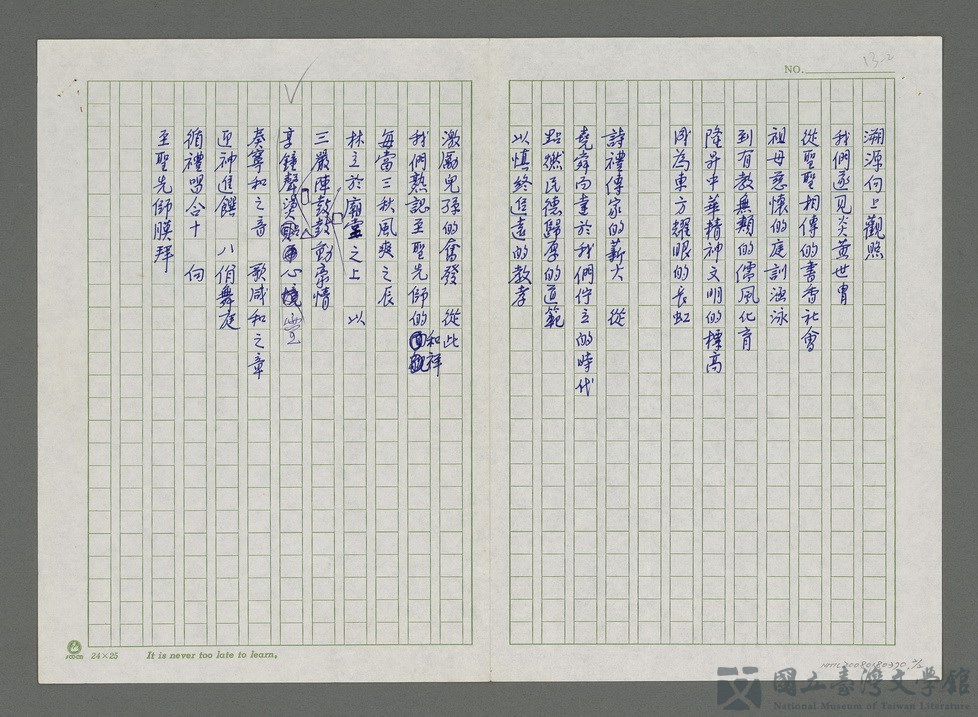 NO. 13-2
溯源向上觀照
我們遂見炎黃世冑
從聖聖相傳的書香社會
祖母慈懷的庭訓涵泳
到有教無類的儒風化育
隆昇中華精神文明的標高
成為東方耀眼的長虹
詩禮傳家的薪火 從
堯舜而達於我們佇立的時代
點燃民德歸厚的道範
以慎終追遠的教孝
激勵兒孫的奮發 從此
我們熟認至聖先師的和祥
每當三秋風爽之辰
林立於廟堂之上 以
三嚴陣鼓鼓動豪情
享鐘聲 心境
奏寧和之音 歌咸和之章
迎神進饌 八佾舞庭
循禮唱合十 向
至聖先師膜拜
24×25 It is never too late to learn.
國立臺灣文學館
National Museum of Taiwan Literature